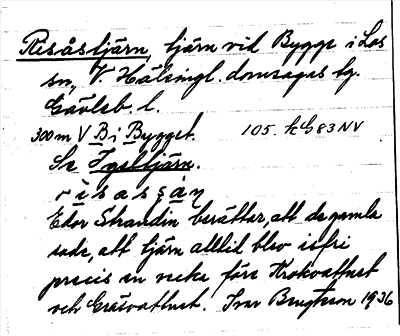 Risåstjärn, tjärn vid Bygget i Los
sn, V Hälsingl. domsagas tg.
Gävleb. l.
300 m V B i Bygget. 105. 83 NV
Se Igeltjärn.
Edor Strandin berättar, att de gamla
sade, att tjärn alltid blev isfri
precis en vecka före Krokvattnet
och Gräsvattnet. Ivar Bengtsson 1936